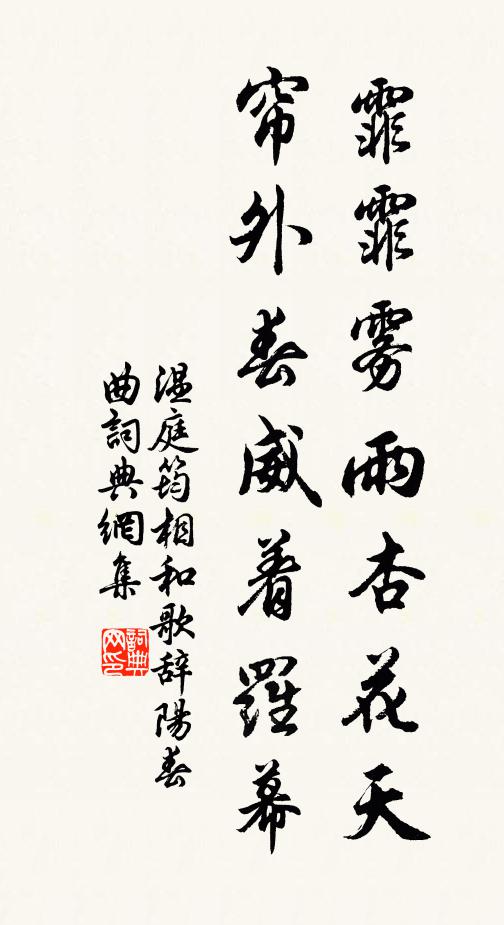 霏霏雾雨杏花天
帘外春威着羅幕
温庭筠相和歌辞陽春
曲詞典網集
詞典
网印